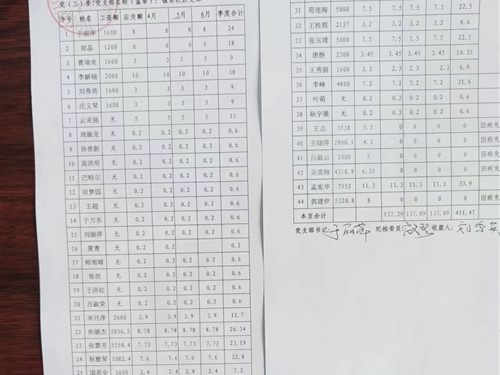 序号 姓名 工资额 应交额 4月 5月 6月 季度合计
1 于丽萍 1600 8 8 8 8 24
2 郑晶 1200 6 6 6 6 18
3 曹瑞英 1600 3 3 3 3 9
4 李解杨 2000 10 10 10 10 30
5 刘秀英 1600 3 3 3 3 9
6 庄义琴 1600 3 3 3 3 9
7 云灵强 无 5 5 5 5 15
8 周振龙 无 0.2 0.2 0.2 0.2 0.6
9 孙贵新 无 0.2 0.2 0.2 0.2 0.6
10 高洪明 无 0.2 0.2 0.2 0.2 0.6
11 巴特尔 无 0.2 0.2 0.2 0.2 0.6
12 田梦园 无 0.2 0.2 0.2 0.2 0.6
13 王超 无 0.2 0.2 0.2 0.2 0.6
14 于万东 无 0.2 0.2 0.2 0.2 0.6
15 刘丽萍 无 0.2 0.2 0.2 0.2 0.6
16 夏青 无 0.2 0.2 0.2 0.2 0.6
17 无 0.2 0.2 0.2 0.2 0.6
18 张欣 无 0.2 0.2 0.2 0.2 0.6
19 于洪红 无 0.2 0.2 0.2 0.2 0.6
20 吕淑荣 无 0.2 0.2 0.2 0.2 0.6
21 宋月萍 2600 3.9 3.9 3.9 3.9 11.7
22 侯丽杰 8.78 8.78 8.78 8.78 26.34
23 张慧芳 5154.4 7.73 7.73 7.73 7.73 23.19
24 耿雅琴 5082.4 7.6 7.6 7.6 7.6 22.8
2.4 2.4 2.4 2.4 7.2
31 荀连海 5000 7.5 7.5 7.5 7.5 22.5
32 王桂霞 2337 3.5 3.5 3.5 3.5
33 张玉璞 5000 7.5 7.5 7.5 7.5 22.5
34 唐静 2300 3.45 3.45 3.45 3.45 10.35
35 王秀丽 2.3 2.3 2.3 2.3 6.9
36 李峰 4800 7.2 7.2 7.2 7.2 21.6
37 叶萌 无 0.2 0.2 0.2 0.2 0.6
38 耿宇薇 无 0.2 0.2 0.2 0.2 0.6
39 王志 3538 5.3 0 0 0 0 因病免
40 王晓萍 2908.1 4.4 0 0 0 0 因病免
41 吕淑云 2000 3 0 0 0 0 因病免
42 吴雪梅 4218.8 6.33 0 0 0 0 因病免
43 孟宪华 7552 11.3 11.3 11.3 11.3 33.9
44 郭建伊 5320.8 8 0 0 0 0 因病免
本页合计 137.29 137.09 137.09 411.47
党支部书记: 于丽萍 纪检委员: 收款人: